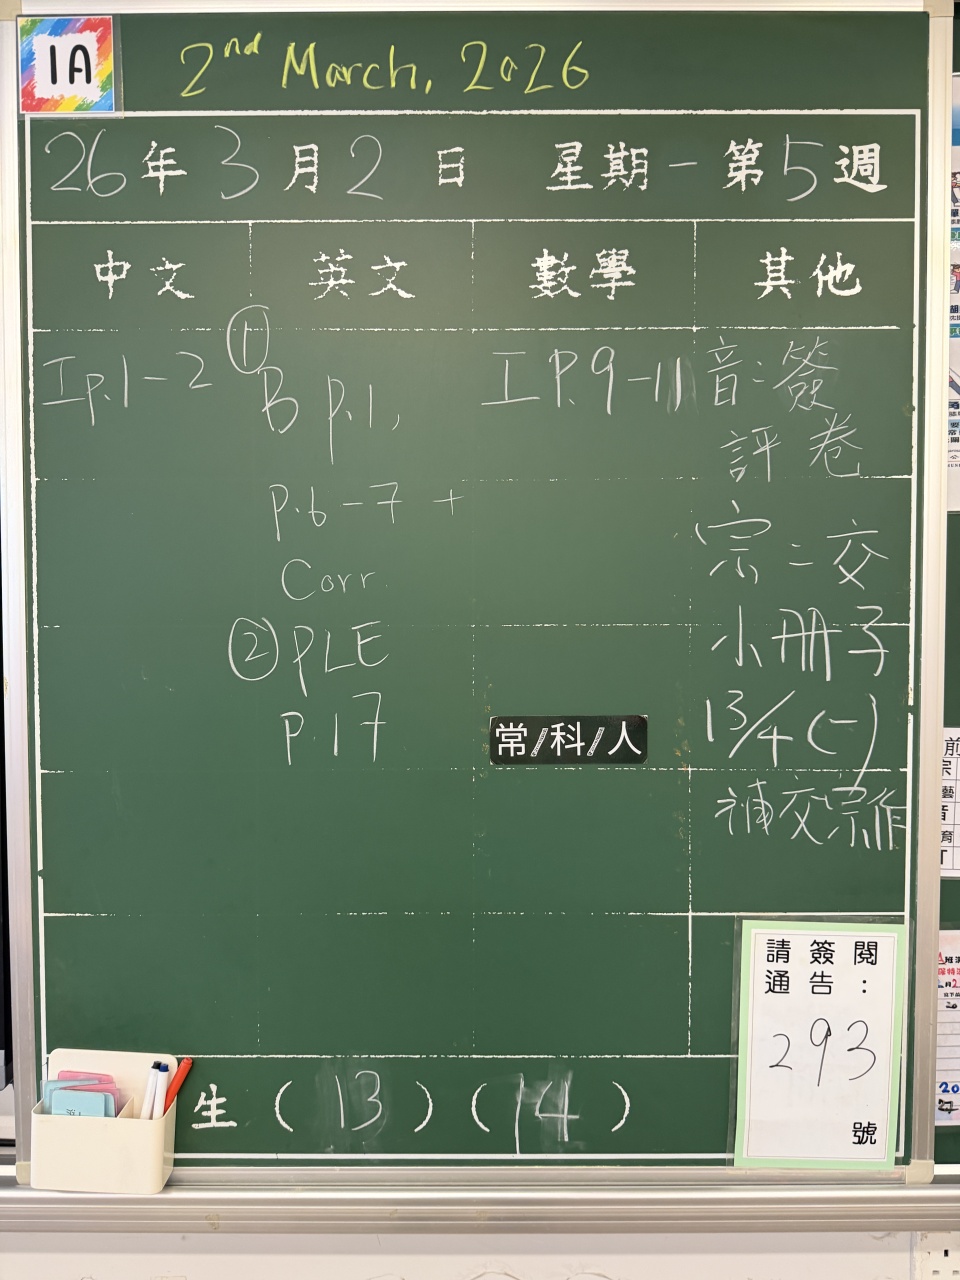 1A
2nd March, 2026
26年3月2日 星期一 第5週
中文 英文 數學 其他
工p.1-2
① B p.1,
p.6-7 +
Corr.
② PLE
p.17
工P.9-11
常/科/人
音:簽
評卷
宗:交
小冊子
13/4(一)
補交宗作
請簽閱
通告:
293
號
生(13)(14)